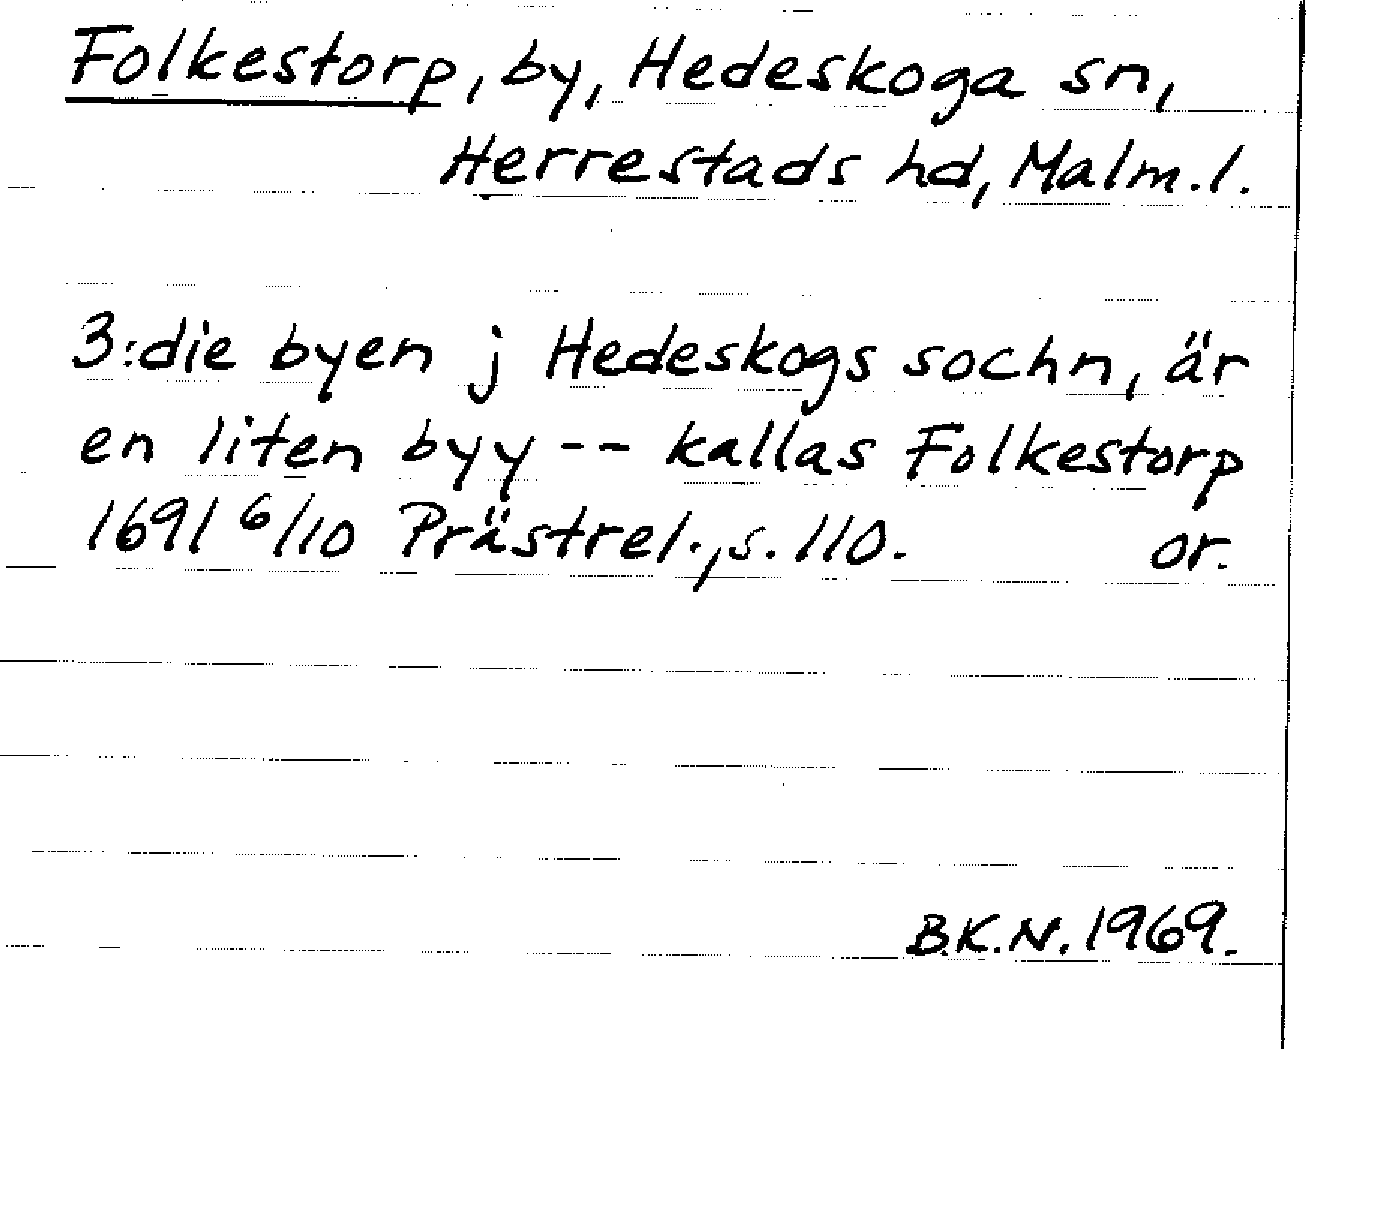 Folkestorp, by, Hedeskoga sn,
Herrestads hd, Malm.l.
3:die byen j Hedeskogs sochn, är
en liten byy -- kallas Folkestorp
1691 6/10 Prästrel., s. 110. or.
B.K.N. 1969.